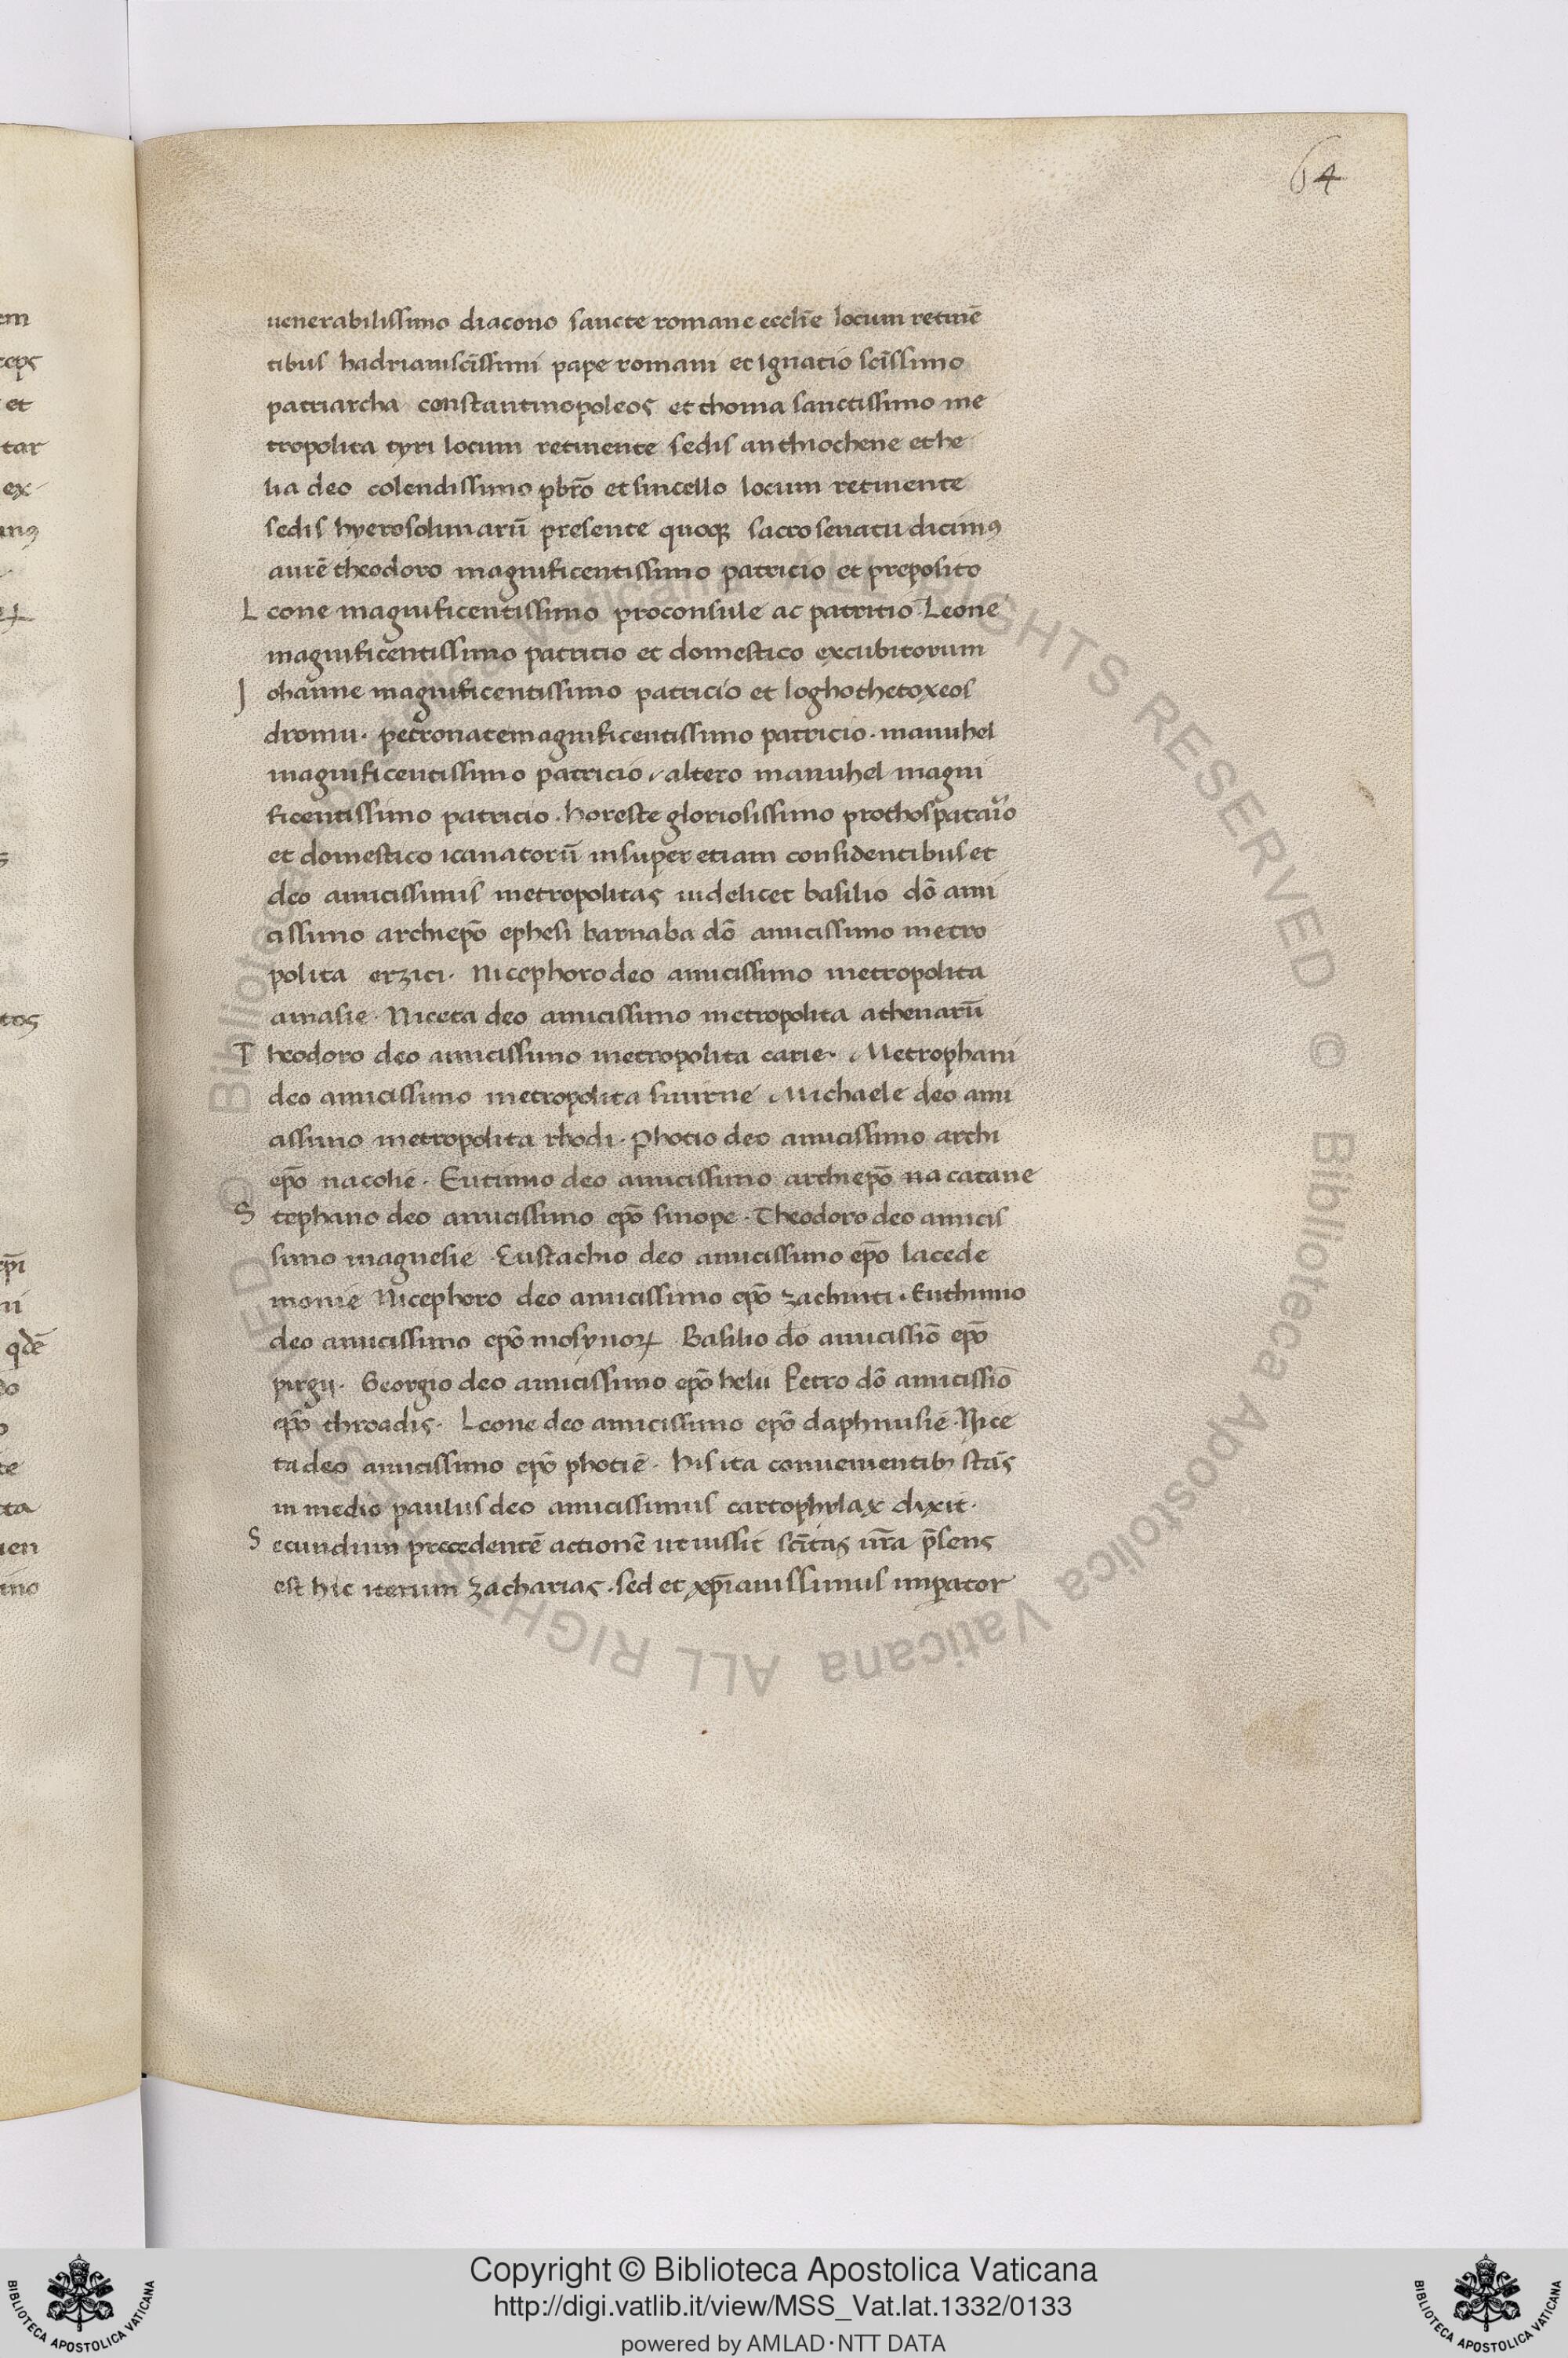 64
uenerabilissimo diacono sancte romane ecclīe locum retinē
tibus hadriani scīssimi pape romani et ignatio scīssimo
patriarcha constantinopoleos et thoma sanctissimo me
tropolita tyri locum retinente sedis anthiochene et he
lia deo colendissimo pbrō et sincello locum retinente
sedis hyerosolimarū presente quoqꝫ sacro senatu dicimꝰ
autē theodoro magnificentissimo patricio et preposito
Leone magnificentissimo proconsule ac patritio Leone
magnificentissimo patricio et domestico excubitorum
Johanne magnificentissimo patricio et loghothetoxeos
dromu · petronate magnificentissimo patricio · manuhel
magnificentissimo patricio · altero manuhel magni
ficentissimo patricio · horeste gloriosissimo prothospatario
et domestico icanatorū insuper etiam considentibus et
deo amicissimis metropolitas uidelicet basilio dō ami
cissimo archiepō ephesi barnaba dō amicissimo metro
polita erzici · Nicephoro deo amicissimo metropolita
amasie · Niceta deo amicissimo metropolita athenarū
Theodoro deo amicissimo metropolita carie · Metrophani
deo amicissimo metropolita smirne Michaele deo ami
cissimo metropolita rhodi · Photio deo amicissimo archi
epō nacolie · Eutimio deo amicissimo archiepō na catane
Stephano deo amicissimo epō sinope · Theodoro deo amicis
simo magnesie · Eustachio deo amicissimo epō lacede
monie Nicephoro deo amicissimo epō zachinti · Euthimio
deo amicissimo epō mosynoꝝ Basilio dō amicissiō epō
pirgij · Georgio deo amicissimo epō helii Petro dō amicissiō
epō throadis · Leone deo amicissimo epō daphnusie · Nice
ta deo amicissimo epō photiē · his ita conuenientibꝫ stās
in medio paulus deo amicissimus cartophylax dixit ·
Secundum precedentē actionē ut iussit scītas ura p̄sens
est hic iterum zacharias · sed et xp̄ianissimus imꝑator
em
ceps
et
tar
ex
tos
ep̄i
ni
qdē
do
o
te
cta
ien
imo
© Biblioteca Apostolica Vaticana ALL RIGHTS RESERVED © Biblioteca Apostolica Vaticana ALL RIGHTS RESERVED
Copyright © Biblioteca Apostolica Vaticana
http://digi.vatlib.it/view/MSS_Vat.lat.1332/0133
powered by AMLAD·NTT DATA
BIBLIOTECA APOSTOLICA VATICANA
BIBLIOTECA APOSTOLICA VATICANA